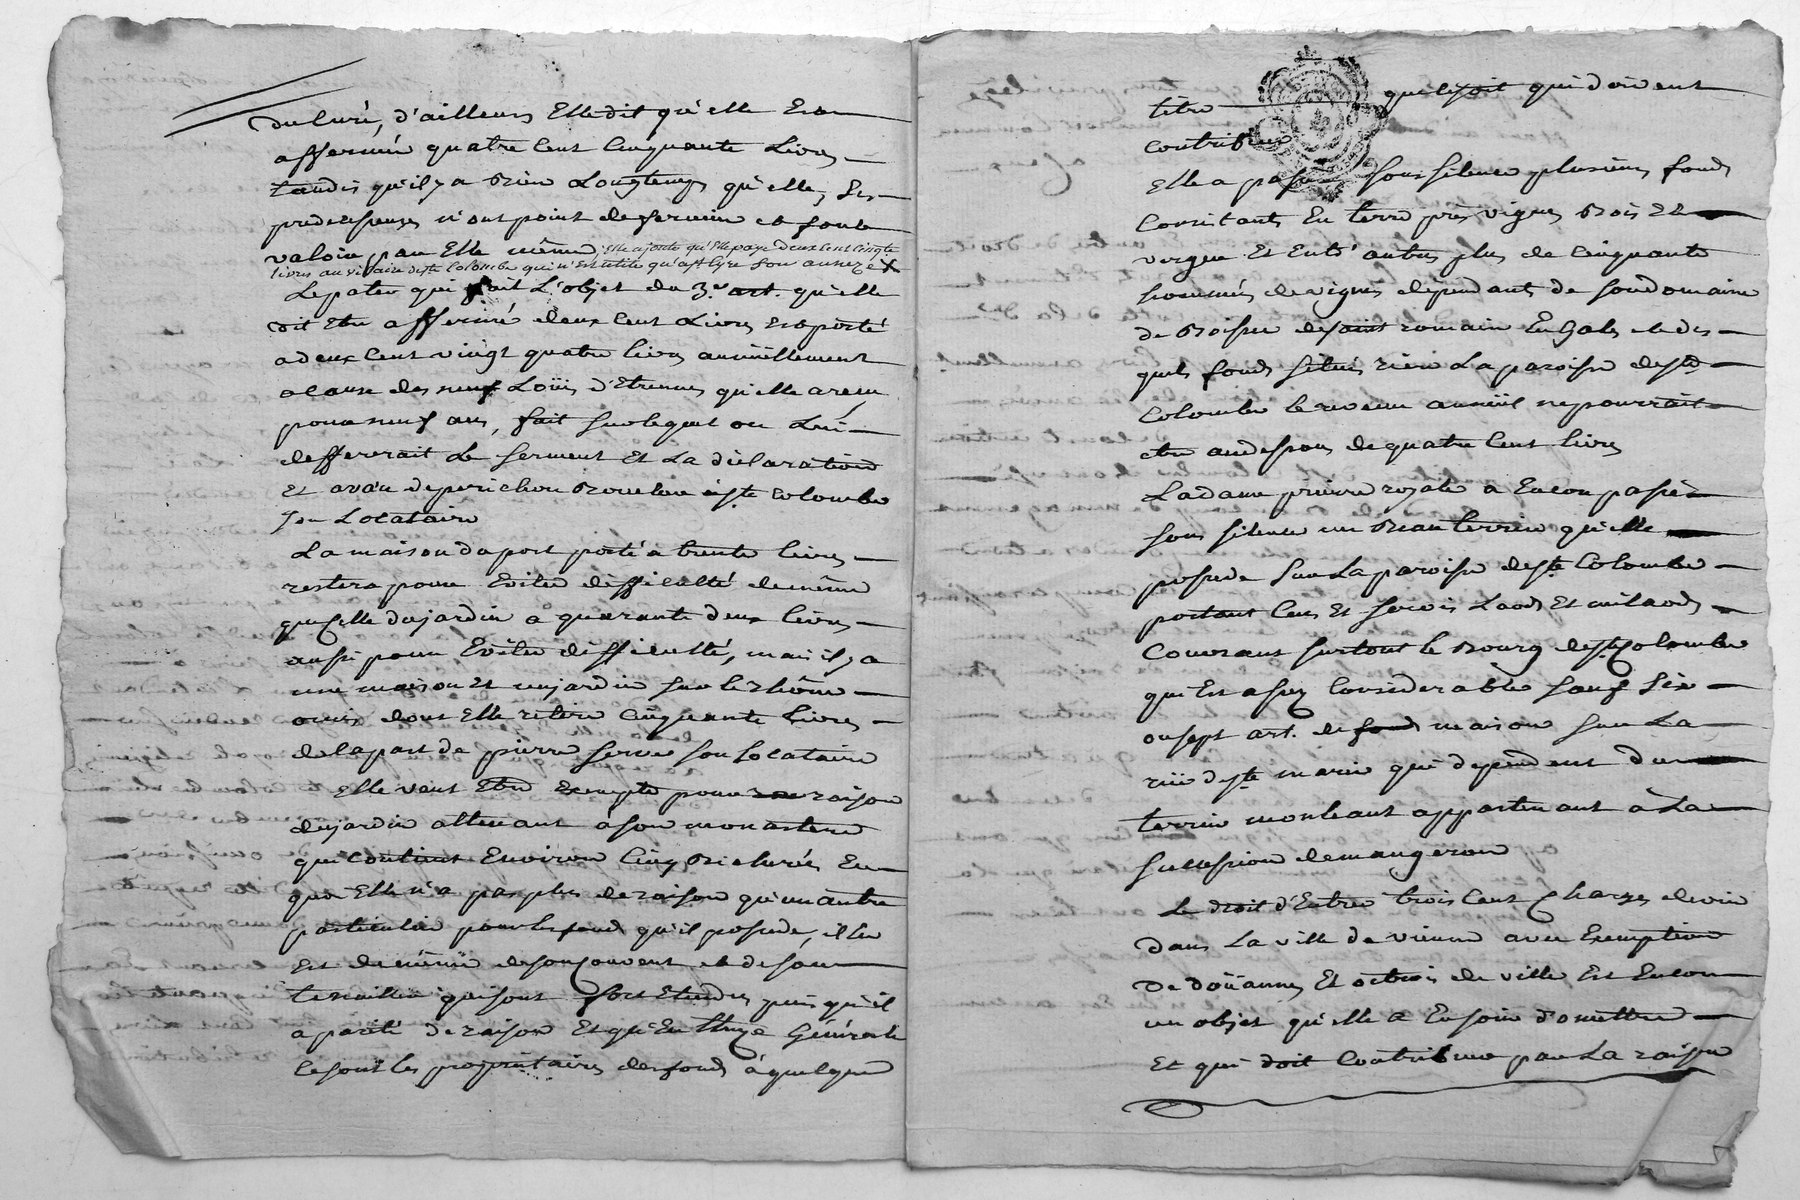 du Curé, d'ailleurs Elle dit qu'elle Est
affermée quatre Cent Cinquante Livres
tandis qu'il y a Bien Longtemps qu'elle, Ses
predecesseuses n'ont point de fermier et font
valoir par Elle même, elle ajoute qu'Elle paye deux cent cinqte
livres au vicaire de Ste Colombe qui n'est utile qu'a
Le patu qui fait L'objet du 3.e art. qu'elle
dit Etre affermé deux Cent Livres Est porté
a deux Cent vingt quatre livres annüellement
a Cause des neuf Loüis d'Etrennes qu'elle a recu
pour neuf ans, fait sur lequel on Lui
differerait Le Serment Et La déclaration
Et aveu de perichon Boucher à Ste Colombe
Son Locataire
La maison du port porté a trente livres
restera pour Eviter difficulté de même
que Celle du jardin a quarante deux livres
aussi pour Eviter difficulté, mais il y a
une maison Et un jardin sur le Rhône
omis dont Elle retire Cinquante Livres
de la part de pierre Serve son Locataire
Elle veut Etre Exempte pour raison
du jardin attenant à son monastere
qui Contient Environ Cinq Bicherées En
quoi Elle n'a pas plus de raison qu'un autre
particulier pour les fonds qu'il possede, il En
Est de même de son Couvent et de son
tenaillier qui sont fort Etendus, puis qu'il
a parité de raison Et qu'En these Générale
Ce sont les proprietaires des fonds à quelque
titre que ce soit qui doivent
contribuer
Elle a passé sous silence plusieurs fonds
Consistants En terre près vignes Bois Et
verger Et Entr'autres plus de Cinquante
hommées de vignes dépendants de son domaine
de Boisse de saint romain En Gal, et des
quels fonds situés rière La paroisse de Ste
Colombe le revenu annüel ne pourrait
etre au dessous de quatre Cent livres
La dame prieure royale a Encor passé
sous silence un Beau terrier qu'elle
possede Sur La paroisse de Ste Colombe
portant Cens Et Servis Laods Et milaods
Couvrant surtout le Bourg de Ste Colombe
qui Est assez Considerable sauf Six
ou sept art. de maison Sur La
rüe de Ste marie qui dependent du
terrier monleant appartenant à La
Succession de mangeron
Le droit d'Entrer trois Cent Charges de vin
dans La ville de vienne avec Exemption
De doüannes Et octrois de ville Est Encor
un objet qu'elle a Eu soin d'omettre
Et qui doit Contribuer par La raison